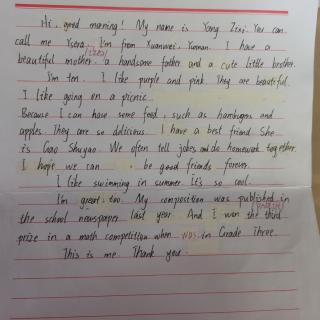 Hi, good morning! My name is Yang Zixi. You can
call me Ysera. I'm from Xuanwei, Yunnan. I have a
beautiful mother, a handsome father and a cute little brother.
I'm ten. I like purple and pink. They are beautiful.
I like going on a picnic.
Because I can have some food, such as hamburgers and
apples. They are so delicious. I have a best friend. She
is Gao Shuyao. We often tell jokes and do homework together.
I hope we can be good friends forever.
I like swimming in summer. It's so cool.
I'm great, too. My composition was published in
the school newspaper last year. And I won the third
prize in a math competition when was in Grade Three.
This is me. Thank you.